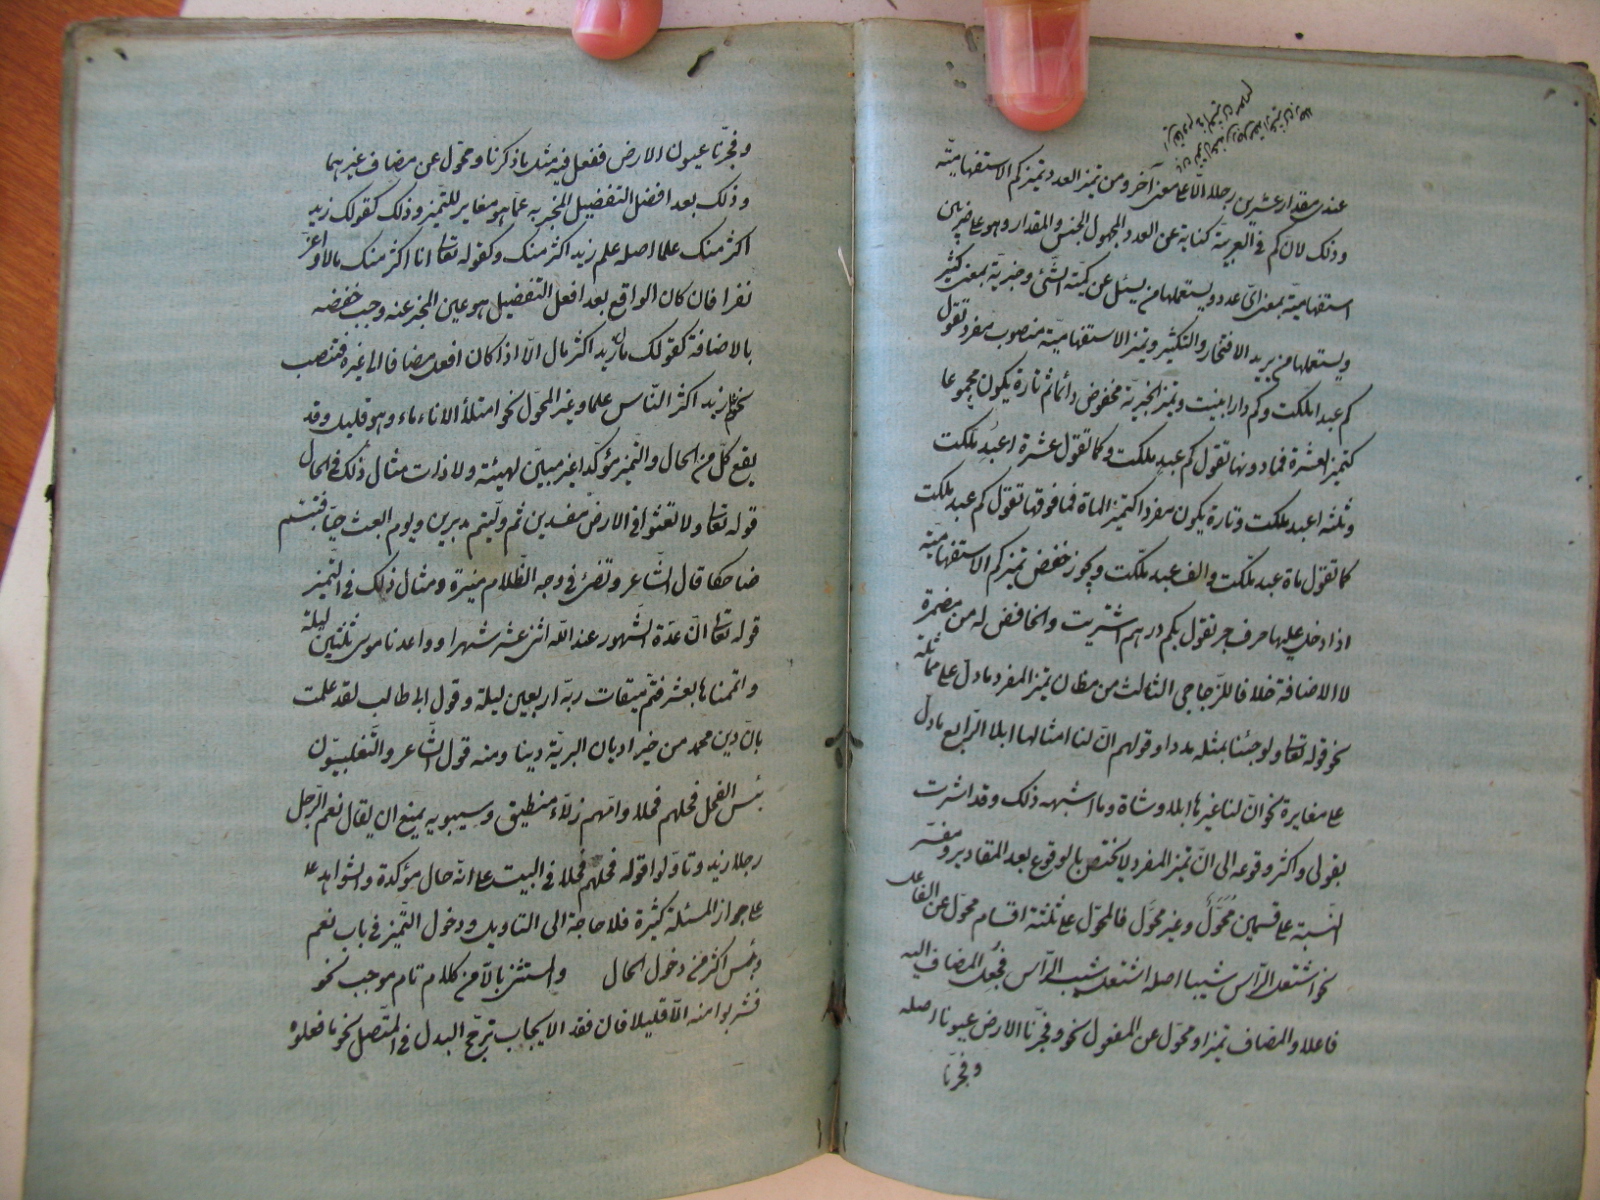 عندى مقدار عشرين رجلا الّا على معنى آخر ومن تميز العدد تميز كم الاستفهاميّة
وذلك لان كم فى العربية كناية عن العدد المجهول الجنس والمقدار وهو على ضربين
استفهاميّة بمعنى اىّ عدد ويستعملها من يسئل عن كميّة الشّئ وخبريّة بمعنى كثير
ويستعملها من يريد الافتخار والتكثير وتميز الاستفهاميّة منصوب مفرد تقول
كم عبدا ملكت وكم دارا بنيت وتميز الخبريّة مخفوض دائما ثم تارة يكون مجموعا
كتميز العشرة فما دونها تقول كم عبيد ملكت وكما تقول عشرة اعبد ملكت
وثلثة اعبد ملكت وتارة يكون مفردا كتميز الماة فما فوقها تقول كم عبد ملكت
كما تقول ماة عبد ملكت والف عبد ملكت ويجوز خفض تميز كم الاستفهاميّة
اذا دخل عليها حرف جر تقول بكم درهم اشتريت والخافض له من مضمرة
لا الاضافة خلافا للزّجاجى الثالث من مظان تميز المفرد ما دل على مماثلة
نحو قوله تعا ولو جئنا بمثله مددا وقولهم انّ لنا امثالها ابلا الرّابع ما دل
على مغايرة نحو انّ لنا غيرها ابلا وشاة وما اشبهه ذلك وقد اشرت
بقولى واكثر وقوعه الى انّ تميز المفرد لا يختص بالوقوع بعد المقادير ومفسّر
النّسبة على قسمين مُحَوَّل وغير محوّل فالمحوّل على ثلثة اقسام محوّل عن الفاعل
نحو اشتعل الرّأس شيبا اصله اشتعل شيب الرّأس فجُعل المضاف اليه
فاعلا والمضاف تميزا ومحوّل عن المفعول نحو وفجّرنا الارض عيونا اصله
وفجّرنا
وفجّرنا عيون الارض ففعل فيه مثل ما ذكرنا ومحوّل عن مضاف غيرهما
وذلك بعد افضل التفضيل المخبر به عمّا هو مغاير للتّميز وذلك كقولك زيد
اكثر منك علما اصله علم زيد اكثر منك وكقوله تعا انا اكثر منك مالا واعزّ
نفرا فان كان الواقع بعد افعل التفضيل هو عين المخبر عنه وجب خفضه
بالاضافة كقولك مال زيد اكثر مال الّا اذا كان افعل مضافا الى غيره فتنصب
نحو زيد اكثر النّاس علما وغير المحوّل نحو امتلأ الاناء ماء وهو قليل وقد
يقع كلّ من الحال والتّميز مؤكّدا غير مبيّن لهيئة ولا ذات مثال ذلك فى الحال
قوله تعا ولا تعثوا فى الارض مفسدين ثم ولّيتم مدبرين ويوم ابعث حيّا فتبسّم
ضاحكا قال الشّاعر وتضئ فى وجه الظّلام منيرة ومثال ذلك فى التّميز
قوله تعا انّ عدّة الشّهور عند اللّه اثنى عشر شهرا وواعدنا موسى ثلثين ليلة
واتممناها بعشر فتمّ ميقات ربّه اربعين ليلة وقول ابى طالب لقد علمت
بانّ دين محمد من خير اديان البريّة دينا ومنه قول الشّاعر والتّغلبيّون
بئس الفحل فحلهم فحلا وامّهم زلّاء منطيق وسيبويه يمنع ان يقال نعم الرّجل
رجلا زيد وتاوّلوا قوله فحلهم فحلا فى البيت على انّه حال مؤكدة والشّواهد على
على جواز المسئلة كثيرة فلا حاجة الى التاويل ودخول التّميز فى باب نعم
وبئس اكثر من دخول الحال والمستثنى بالّا من كلام تام موجب نحو
فشربوا منه الّا قليلا فان فقد الايجاب ترجّح البدل فى المتّصل نحو ما فعلوه